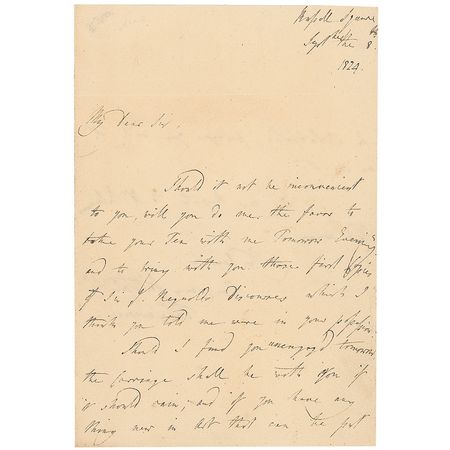 Russell Square
Septr the 8th
1824.
My Dear Sir,
Should it not be inconvenient
to you, will you do me the favor to
take your Tea with me Tomorrow Evening,
and to bring with you those first Copies
of Sir J. Reynolds Discourses which I
think you told me were in your possession.
Should I find you unengag'd tomorrow
the Carriage shall be with you if
it should rain; and if you have any
thing new in Art that can be put